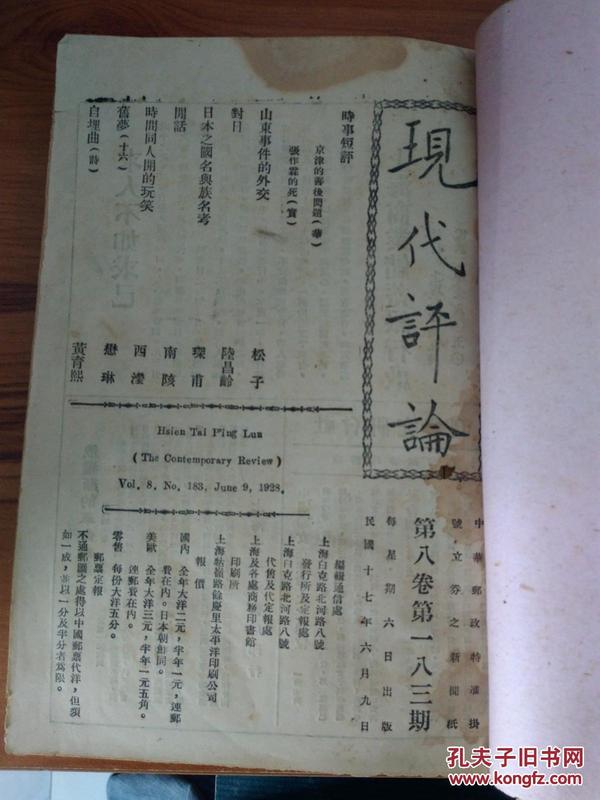 現代評論
中華郵政特准掛
號立券之新聞紙
第八卷第一八三期
每星期六日出版
民國十七年六月九日
時事短評
京津的善後問題（華）
張作霖的死（實）
山東事件的外交 松子
對日 陸昌齡
日本之國名與族名考 璨甫
閒話 南陔
時間同人開的玩笑 西瀅
舊夢（十六） 懋琳
自埋曲（詩） 黃育熙
Hsien Tai P'ing Lun
(The Contemporary Review)
Vol. 8, No. 183, June 9, 1928.
編輯通信處
上海白克路北河路八號
發行所及定報處
上海白克路北河路八號
代售及代定報處
上海及各處商務印書館
印刷所
上海牯嶺路餘慶里太平洋印刷公司
報價
國內 全年大洋二元，半年一元，連郵
費在內。日本朝鮮同。
美歐 全年大洋三元，半年一元五角。
連郵費在內。
零售 每份大洋五分。
郵票定報
不通郵匯之處得以中國郵票代洋，但須
加一成，並以一分及半分者為限。
孔夫子旧书网
www.kongfz.com